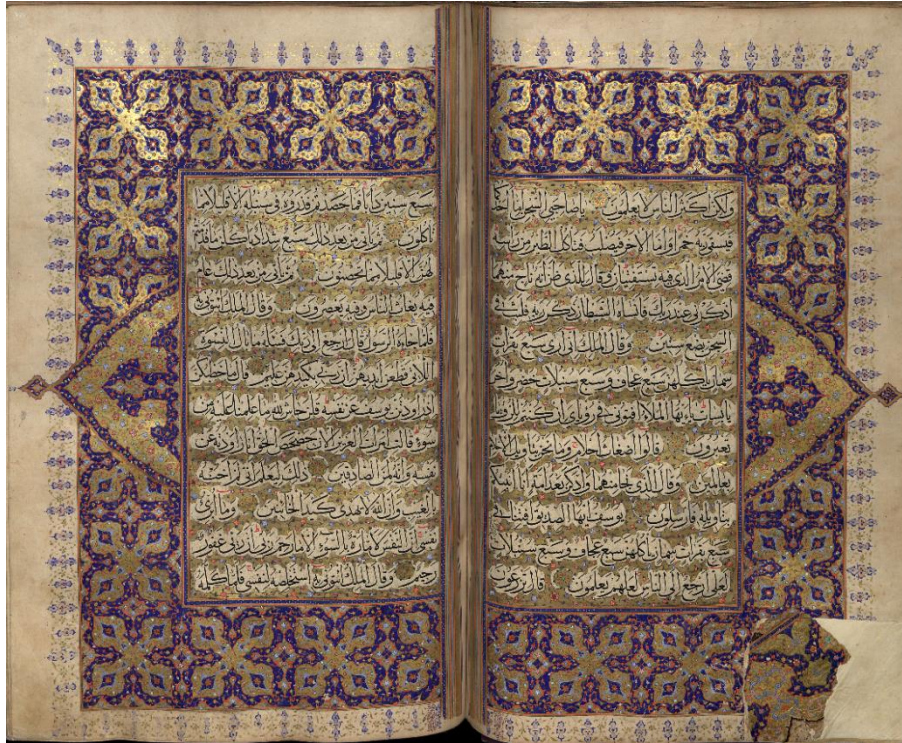 ولكن أكثر الناس لا يعلمون يا صاحبي السجن أما أحدكما
فيسقي ربه خمرا وأما الآخر فيصلب فتأكل الطير من رأسه
قضي الأمر الذي فيه تستفتيان وقال للذي ظن أنه ناج منهما
اذكرني عند ربك فأنساه الشيطان ذكر ربه فلبث في
السجن بضع سنين وقال الملك إني أرى سبع بقرات
سمان يأكلهن سبع عجاف وسبع سنبلات خضر وأخر
يابسات يا أيها الملأ أفتوني في رؤياي إن كنتم للرؤيا
تعبرون قالوا أضغاث أحلام وما نحن بتأويل الأحلام
بعالمين وقال الذي نجا منهما وادكر بعد أمة أنا أنبئكم
بتأويله فأرسلون يوسف أيها الصديق أفتنا في
سبع بقرات سمان يأكلهن سبع عجاف وسبع سنبلات
لعلي أرجع إلى الناس لعلهم يعلمون قال تزرعون
سبع سنين دأبا فما حصدتم فذروه في سنبله إلا قليلا مما
تأكلون ثم يأتي من بعد ذلك سبع شداد يأكلن ما قدمتم
لهن إلا قليلا مما تحصنون ثم يأتي من بعد ذلك عام
فيه يغاث الناس وفيه يعصرون وقال الملك ائتوني به
فلما جاءه الرسول قال ارجع إلى ربك فاسأله ما بال النسوة
اللاتي قطعن أيديهن إن ربي بكيدهن عليم قال ما خطبكن
إذ راودتن يوسف عن نفسه قلن حاش لله ما علمنا عليه من
سوء قالت امرأت العزيز الآن حصحص الحق أنا راودته عن
نفسه وإنه لمن الصادقين ذلك ليعلم أني لم أخنه
بالغيب وأن الله لا يهدي كيد الخائنين وما أبرئ
نفسي إن النفس لأمارة بالسوء إلا ما رحم ربي إن ربي غفور
رحيم وقال الملك ائتوني به أستخلصه لنفسي فلما كلمه